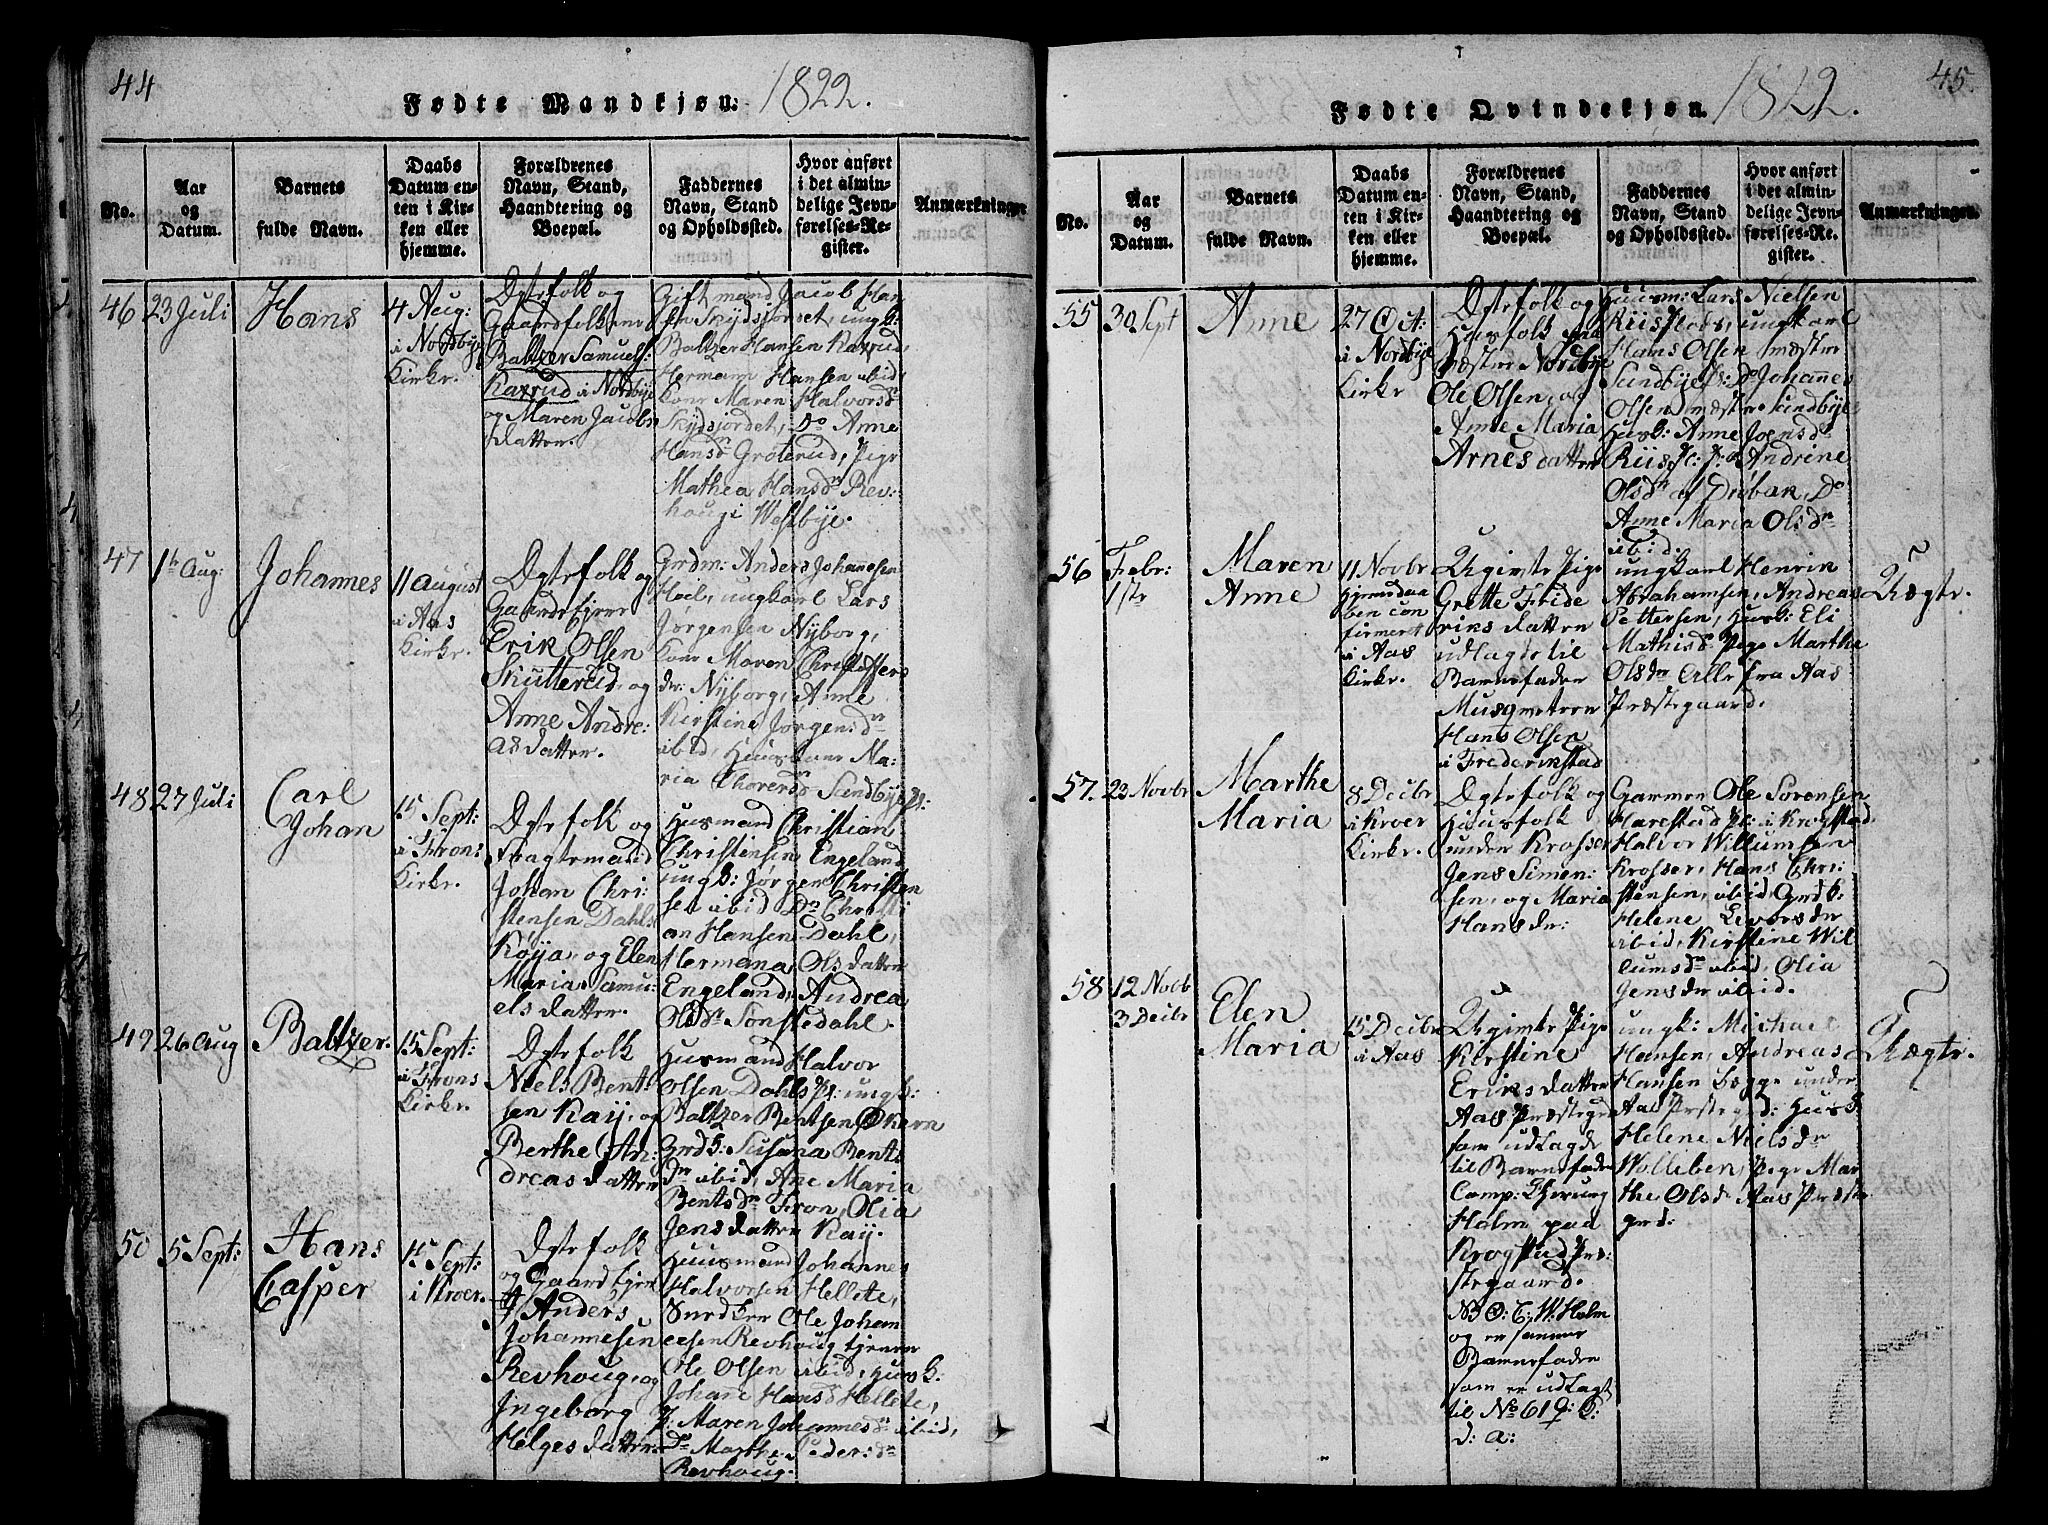 44
Fødte Mandkjøn. 1822.
No.
Aar
og
Datum.
Barnets
fulde Navn.
Daabs
Datum en-
ten i Kir-
ken eller
hjemme.
Forældrenes
Navn, Stand,
Haandtering og
Boepæl.
Faddernes
Navn, Stand
og Opholdssted.
Hvor anført
i det almin-
delige Jevn-
førelses-Re-
gister.
Anmærkninger
46
23 Juli
Hans
4 Aug:
i Nordbye
Kirke.
Ægtefolk og
Gaardfolkene
Baltzer Samuels:
Kaxrud i Nordbye
og Maren Jacobs
datter.
Gift mand Jacob Han
sen Skydsjordet, ungk:
Baltzer Hansen Kaxrud,
Hermann Hansen ibid,
Kone Maren Halvorsd
Skydsjordet, Do Anne
Hansdr Grøterud, Pige
Mathea Hansdr Rev:
houg i Westbye.
47
1te Aug:
Johannes
11 August
i Aas
Kirke.
Ægtefolk og
Gaardbrugere
Erik Olsen
Skutterud, og
Anne Andre:
asdatter.
Grdm: Anders Johanesen
Hoel, ungkarl Lars
Jørgensen Nyborg,
Kone Maren Christoffers
dr: Nyborg, Anne
Kirstine Jørgensdr
ibid, Huuskone Ma:
ria Thoresdr Sundbyepl:
48
27 Juli
Carl
Johan
15 Sept:
i Frons
Kirke.
Ægtefolk og
Fragtemand
Johan Chri:
stensen Dahls
Køya, og Elen
Maria Samu:
elsdatter.
Husmand Christian
Christensen Engeland
ungk: Jørgen Christen
sen ibid Do Christi
an Hansen Dahl,
Hermana Olsdatter
Engeland, Andrea
Olsdr Sønstedahl.
49
26 Aug
Baltzer.
15 Sept:
i Frons
Kirke.
Ægtefolk
Niels Bent:
sen Kay, og
Berthe An:
dreasdatter
Husmand Halvor
Olsen Dahls Pl: ungk:
Baltzer Bentsen Økern
Grdk: Susana Bents
dr ibid, Ane Maria
Bentsdr Fron, Olia
Jensdatter Kay.
50
5 Sept:
Hans
Casper
15 Sept:
i Kroer.
Ægtefolk
og Gaardbruger
Anders
Johannesen
Revhoug, og
Ingeborg
Helgesdatter
Huusmand Johannes
Halvorsen Hellete,
Snedker Ole Johan
nesen Revhoug tjener
Ole Olsen ibid, Husk:
Johane Hansd Hellete,
P: Maren Johannesdr ibid,
Do Marthe Pedersdr
Revhoug.
45.
Fødte Qvindekjøn. 1822.
No.
Aar
og
Datum.
Barnets
fulde Navn.
Daabs
Datum en-
ten i Kir-
ken eller
hjemme.
Forældrenes
Navn, Stand,
Haandtering og
Boepæl.
Faddernes
Navn, Stand
og Opholdssted.
Hvor anført
i det almin-
delige Jevn-
førelses-Re-
gister.
Anmærkninger.
55
30 Sept
Anne
27 Oct:
i Nordbye
Kirke
Ægtefolk og
Husfolk paa
Mæster Nordbye
Ole Olsen, og
Anne Maria
Arnesdatter
Huusm: Lars Nielsen
Riis Plads, ungkarl
Hans Olsen mæster
Sundbyepl: Do Johannes
Olsen mæster Sundbye
Husk: Anne Joensdr
Riis Pl: P. Andrine
Olsdr af Drøbak, Do
Anne Maria Olsdr
ibid.
56
Febr:
1ste
Maren
Anne
11 Novbr
Hjemedaa
ben con
firmeret
i Aas
Kirke.
Ugivte Pige
Grette Fride
riksdatter
udlagde til
Barnefader
Musqveteer
Hans Olsen
i Frederikstad
ungkarl Henrik
Abrahamsen, Andreas
Pettersen, Husk: Eli
Mathisdr Pige Marthe
Olsdr Alle fra Aas
Præstegaard.
Uægte.
57.
23 Novbr
Marthe
Maria
8 Decbr
i Kroer
Kirke.
Ægtefolk og
Huusfolk
under Krosser
Jens Simen:
sen, og Maria
Hansdr:
Garmer Ole Sørensen
Harestad pl: i Krogstad.
Halvor Willumsen
Krosser, Hans Chri:
stensen, ibid Grdk:
Helene Sivers dr
ibid, Kirstine Wil
lumsdr ibid, Olia
Jensdr ibid.
58
12 Novb
3 Decbr
Elen
Maria
15 Decbr
i Aas
Ugivte Pige
Kirstine
Eriksdatter
Aas Præstegrd
som udlagde
til Barnefader
Comp: Chirurg
Holm paa
Krogstad Præ:
stegaard.
NB O: C: W: Holm
og er samme
Barnefader
som er udlagt
til No 61 Q: K:
d: a:
ungk: Michael
Hansen, Andreas
Hansen begge under
Aas Præstegd: Husk:
Helene Nielsdr
Wolleben, Pige Mar
the Olsd Aas Præste
grd:
Uægte.